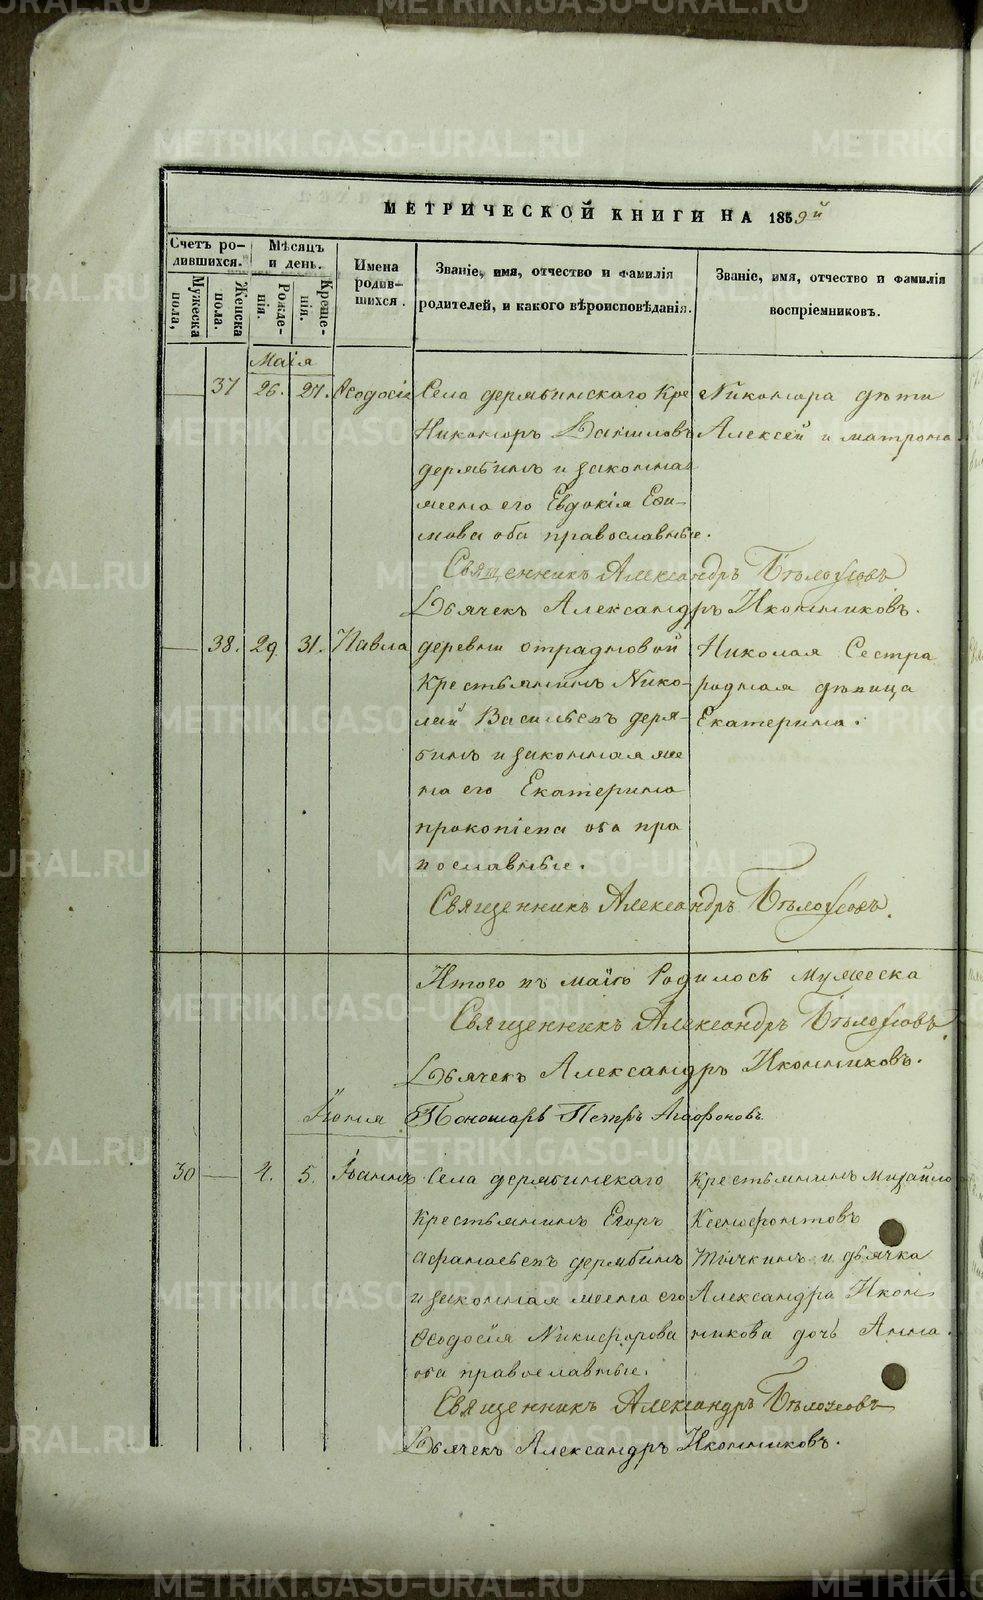 МЕТРИЧЕСКОЙ КНИГИ НА 1859й
Счетъ ро-
дившихся.
Мѣсяцъ
и день.
Имена
родив-
шихся.
Званіе, имя, отчество и фамилія
родителей, и какого вѣроисповѣданія.
Званіе, имя, отчество и фамилія
воспріемниковъ.
Мужеска
пола,
Женска
пола.
Рожде-
нія.
Креще-
нія.
Маія
37 26. 27. Ѳеодосія Села дерябинскаго Кре Никонора дѣти
Никоноръ Даниловъ Алексей и матрона
дерябинъ и законная
жена его Евдокія Ефи-
мова оба православные.
Священникъ Александръ Бѣлоусовъ
Дьячекъ Александръ Иконниковъ.
38. 29 31. Павла деревни отрадновой Николая Сестра
Крестьянинъ Нико- родная дѣвица
лай Васильевъ деря- Екатерина.
бинъ и законная же
на его Екатерина
прокопіева оба пра
вославные.
Священникъ Александръ Бѣлоусовъ.
Итого въ маію Родилось мужеска
Священникъ Александръ Бѣлоусовъ.
Дьячекъ Александръ Иконниковъ.
Іюня Пономарь Петръ Агафоновъ
30 4. 5. Іоаннъ Села дерябинскаго Крестьянинъ Михайло
Крестьянинъ Егоръ Ксенофонтовъ
Афанасьевъ дерябинъ Тычкинъ и дьячка
и законная жена его Александра Икон
Ѳеодосія Никифорова никова дочь Анна.
оба православные.
Священникъ Александръ Бѣлоусовъ
Дьячекъ Александръ Иконниковъ.
METRIKI.GASO-URAL.RU